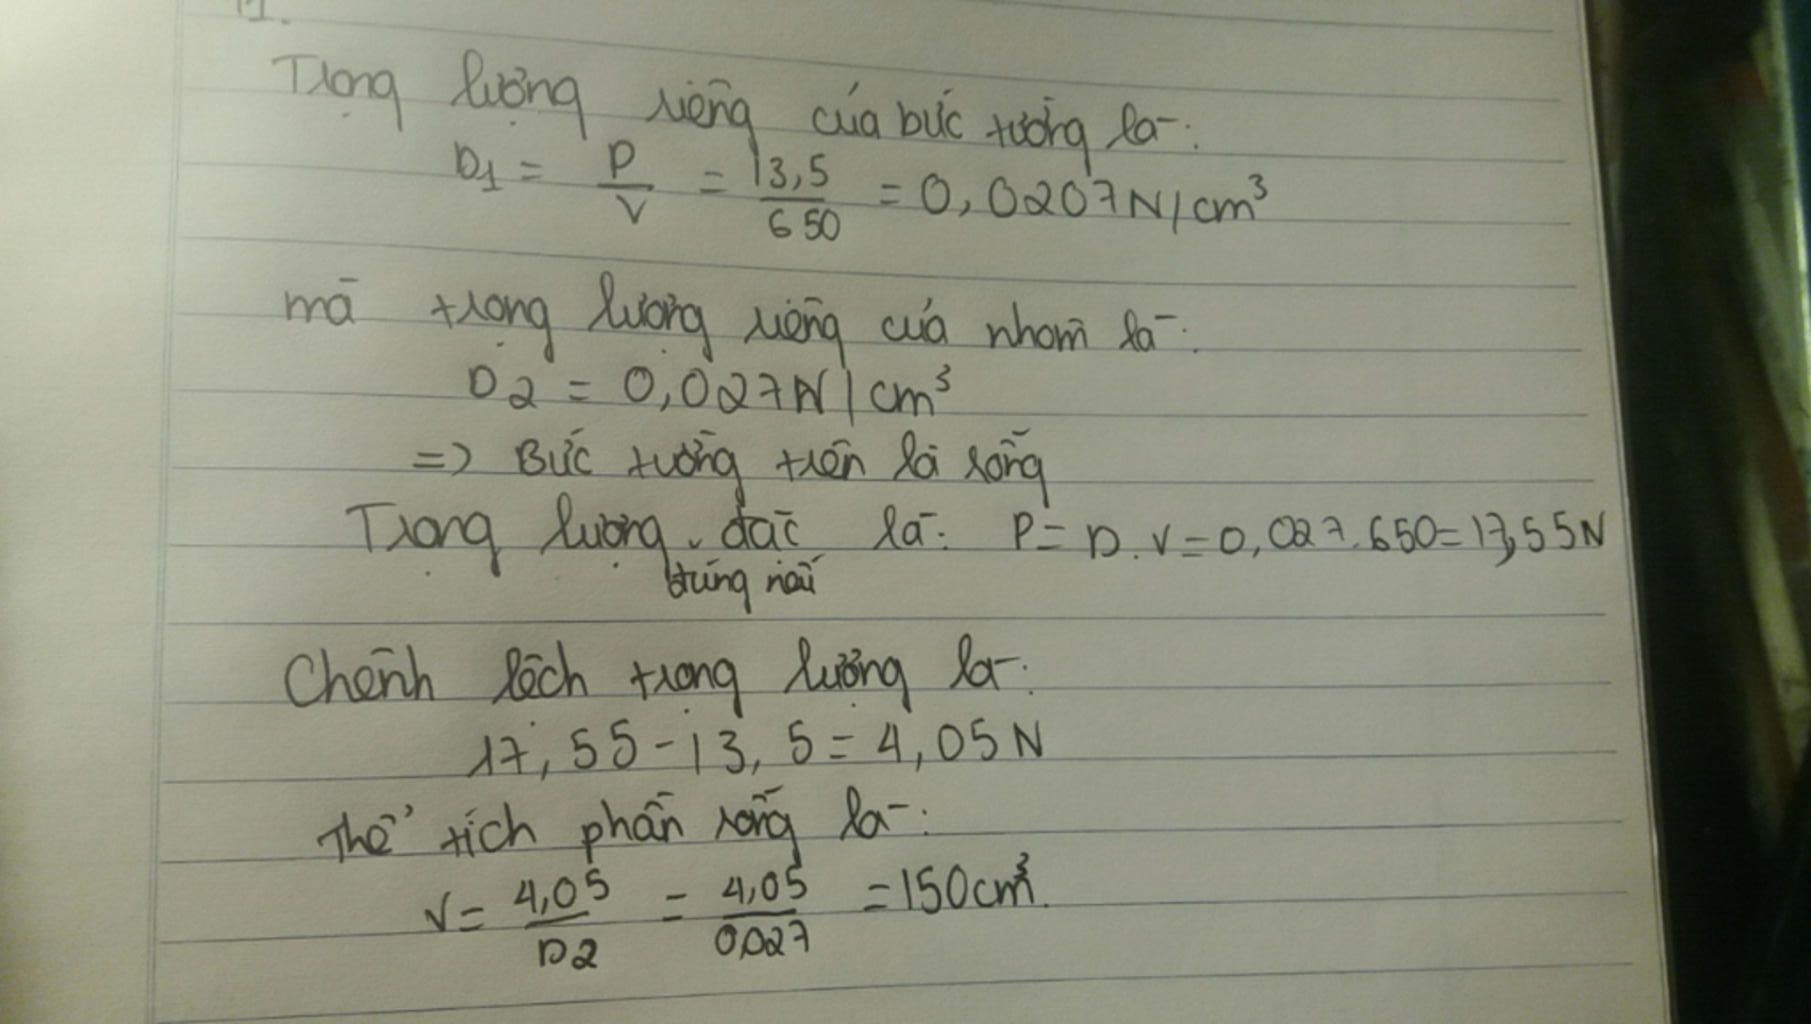 Trọng lượng riêng của bức tường là:
D1 = P/V = 13,5/650 = 0,0207N/cm³
mà trọng lượng riêng của nhôm là:
D2 = 0,027N/cm³
=> Bức tường trên là rỗng
Trọng lượng đặc là: P = D.V = 0,027.650=17,55N
Chênh lệch trọng lượng là:
17,55-13,5=4,05N
Thể tích phần rỗng là:
V = 4,05/D2 = 4,05/0,027 = 150cm³.